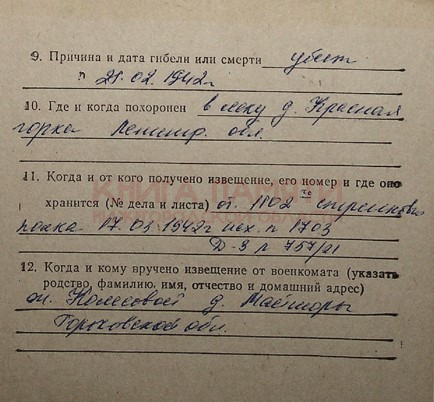 9. Причина и дата гибели или смерти убит
21.02.1942г
10. Где и когда похоронен в леску д. Красная
горка Ленингр. обл.
11. Когда и от кого получено извещение, его номер и где оно
хранится (№ дела и листа) от 1102 го стрелкового
полка 17.03.1942г исх. п 1703
Д-3 л 757/21
12. Когда и кому вручено извещение от военкомата (указать
родство, фамилию, имя, отчество и домашний адрес)
Колесовой д.
Горьковской обл.